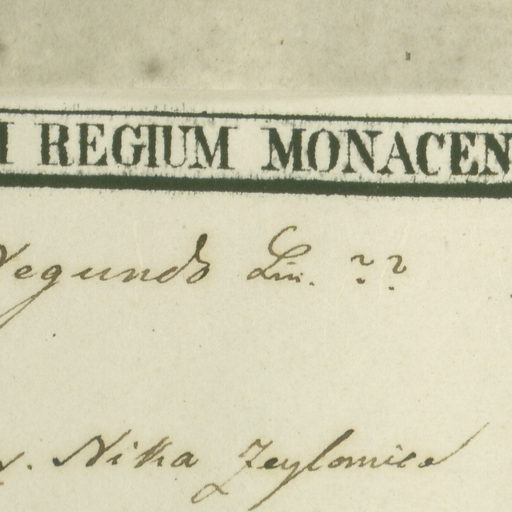 REGIUM MONACEN
Negundo Lin. ??
Nika Zeylonica